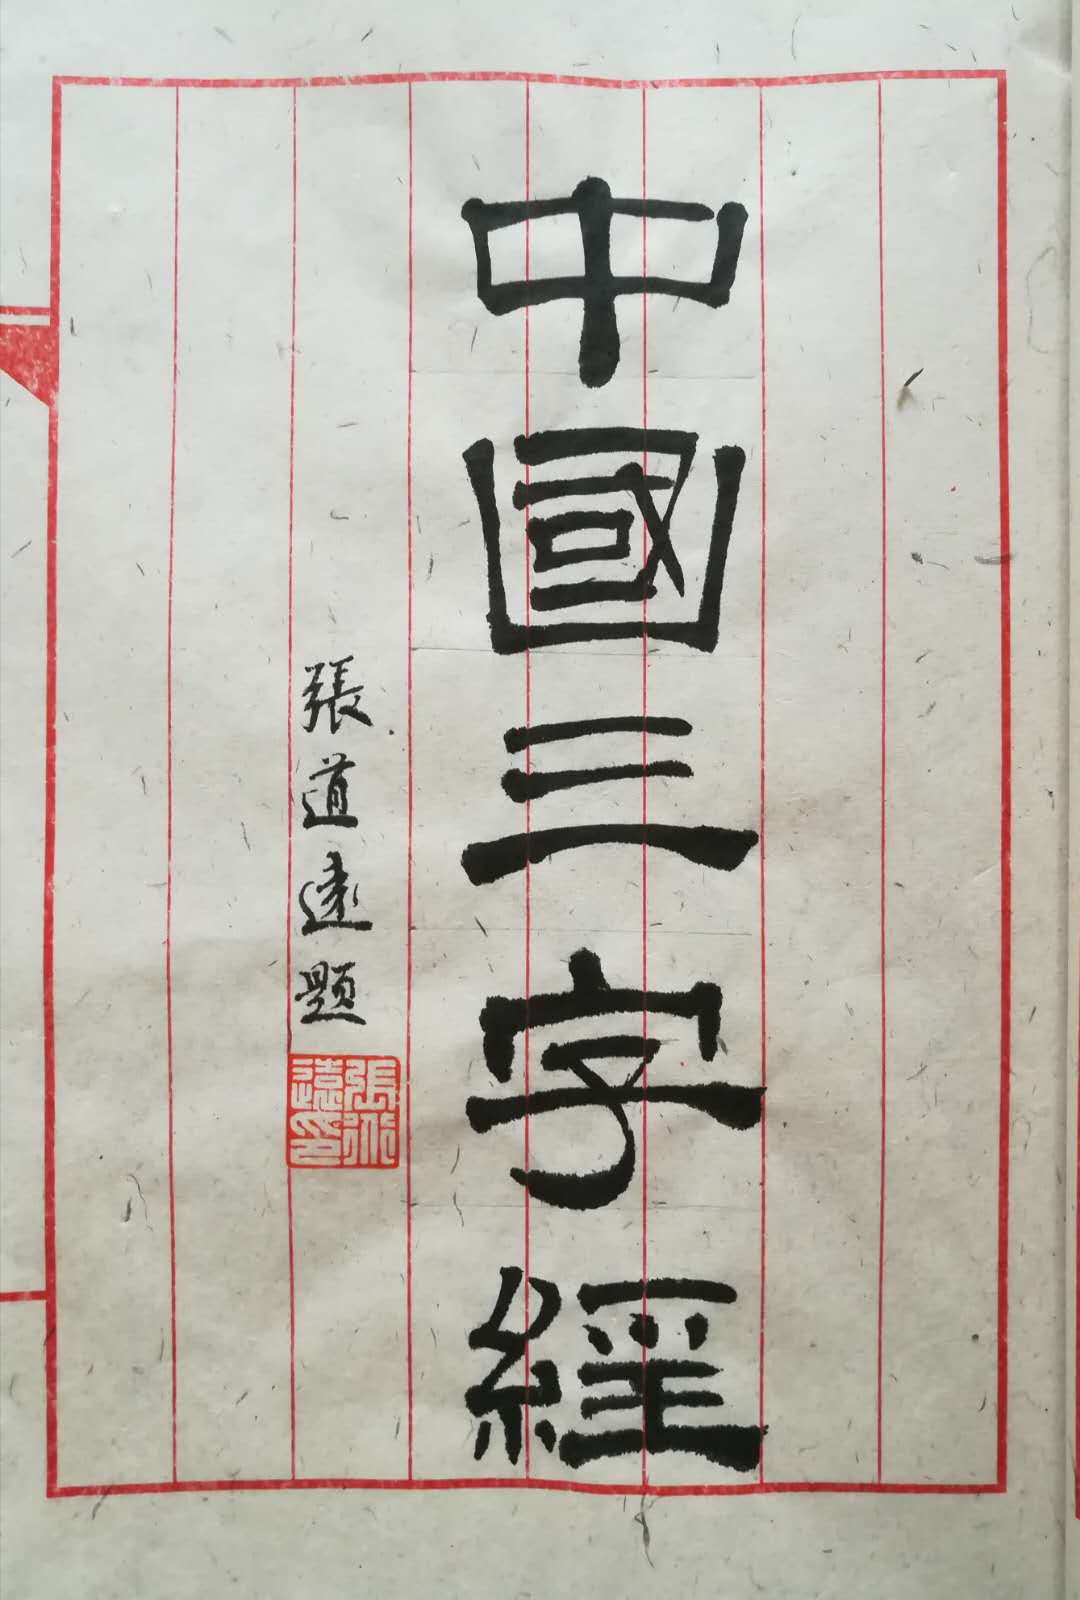 中國三字經
張道遠題
張道遠印